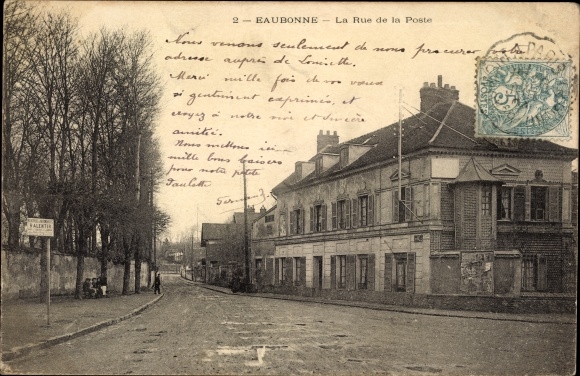 2 — EAUBONNE — La Rue de la Poste
Nous venons seulement de nous procurer votre
adresse auprès de
Merci mille fois de vos vœux
si gentiment exprimés, et
croyez à notre vive et sincère
amitié.
Nous mettons ici
mille bons baisers
pour notre petite
Paulette
VALENTIN